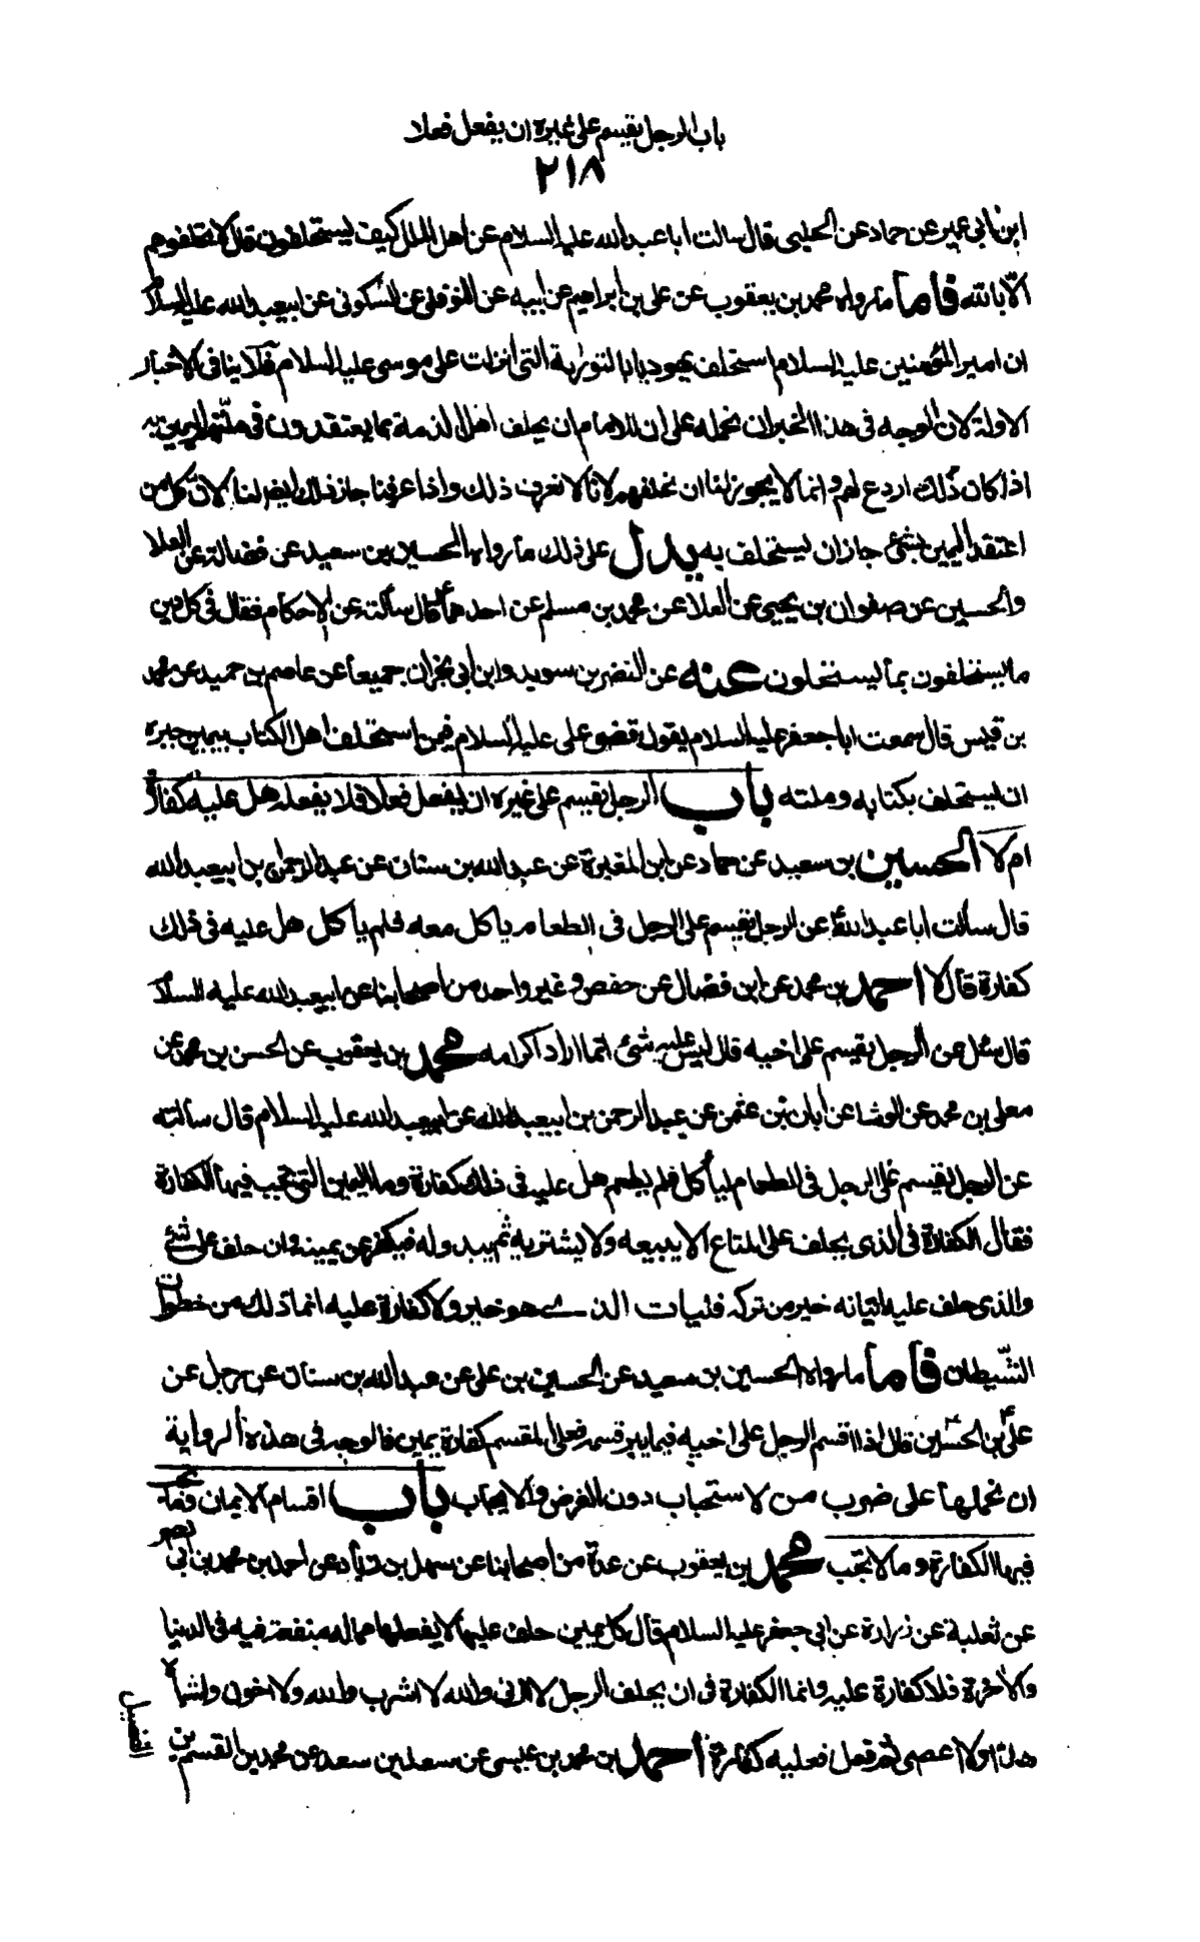 باب الرجل يقسم على غيره ان يفعل فعلا
٢١٨
ابن ابى عمير عن حماد عن الحلبى قال سالت ابا عبد الله عليه السلام عن اهل الملل كيف يستحلفون قال لا تحلفوهم
الا بالله فاما ما رواه محمد بن يعقوب عن على بن ابراهيم عن ابيه عن النوفلى عن السكونى عن ابيعبد الله عليه السلام
ان امير المؤمنين عليه السلام استحلف يهوديا بالتورية التى انزلت على موسى عليه السلام فلا ينافى الاخبار
الاولة لان الوجه فى هذا الخبر ان نحمله على ان للامام ان يحلف اهل الذمة بما يعتقدون فى ملتهم اليمين به
اذا كان ذلك اردع لهم وانما لا يجوز لنا ان نحلفهم لانا لا نعرف ذلك واذا عرفنا جاز ذلك ايضا لنا لان كل من
اعتقد اليمين بشئ جاز ان يستحلف به يدل على ذلك ما رواه الحسين بن سعيد عن فضالة عن العلا
والحسين عن صفوان بن يحيى عن العلا عن محمد بن مسلم عن احدهما قال سألته عن الاحكام فقال فى كل دين
ما يستحلفون بما يستحلون عنه عن النضر بن سويد وابن ابى نجران جميعا عن عاصم بن حميد عن محمد
بن قيس قال سمعت ابا جعفر عليه السلام يقول قضى على عليه السلام فيمن استحلف اهل الكتاب بيمين صبره
ان يستحلف بكتابه وملته باب الرجل يقسم على غيره ان يفعل فعلا فلا يفعله هل عليه كفارة
ام لا الحسين بن سعيد عن حماد عن ابن المغيرة عن عبد الله بن سنان عن عبد الرحمن بن ابيعبد الله
قال سألت ابا عبد الله عن الرجل يقسم على الرجل فى الطعام ياكل معه فلم ياكل هل عليه فى ذلك
كفارة قال لا احمد بن محمد عن ابن فضال عن حفص وغير واحد من اصحابنا عن ابيعبد الله عليه السلام
قال سئل عن الرجل يقسم على اخيه قال ليس عليه شئ انما اراد اكرامه محمد بن يعقوب عن الحسن بن محمد عن
معلى بن محمد عن الوشا عن أبان بن عثمن عن عبد الرحمن بن ابيعبد الله عن ابيعبد الله عليه السلام قال سالته
عن الرجل يقسم على الرجل فى الطعام ليأكل فلم يطعم هل عليه فى ذلك كفارة وما اليمين التى تجب فيها الكفارة
فقال الكفارة فى الذى يحلف على المتاع الا يبيعه ولا يشتريه ثم يبدو له فيكفر عن يمينه وان حلف على شئ
والذى حلف عليه اتيانه خير من تركه فليات الذى هو خير ولا كفارة عليه انما ذلك من خطوات
الشيطان فاما ما رواه الحسين بن سعيد عن الحسين بن على عن عبد الله بن سنان عن رجل عن
على بن الحسين قال اذا اقسم الرجل على اخيه فيما يبر قسمه فعلى المقسم كفارة يمين فالوجه فى هذه الرواية
ان نحملها على ضرب من لاستحباب دون الفرض والايجاب باب اقسام الايمان وما تجب
فيها الكفارة وما لا تجب محمد بن يعقوب عن عدة من اصحابنا عن سهل بن زياد عن احمد بن محمد بن ابى نصر
عن ثعلبة عن زرارة عن ابى جعفر عليه السلام قال كل يمين حلف عليها لا يفعلها مما له منفعة فيه فى الدنيا
والاخرة فلا كفارة عليه وانما الكفارة فى ان يحلف الرجل لا ازنى والله لا اشرب والله ولا اخون واشباه
هذا اولا اعصى ثم فعل فعليه كفارة احمد بن محمد بن عيسى عن سعد بن سعد عن محمد بن القسم بن